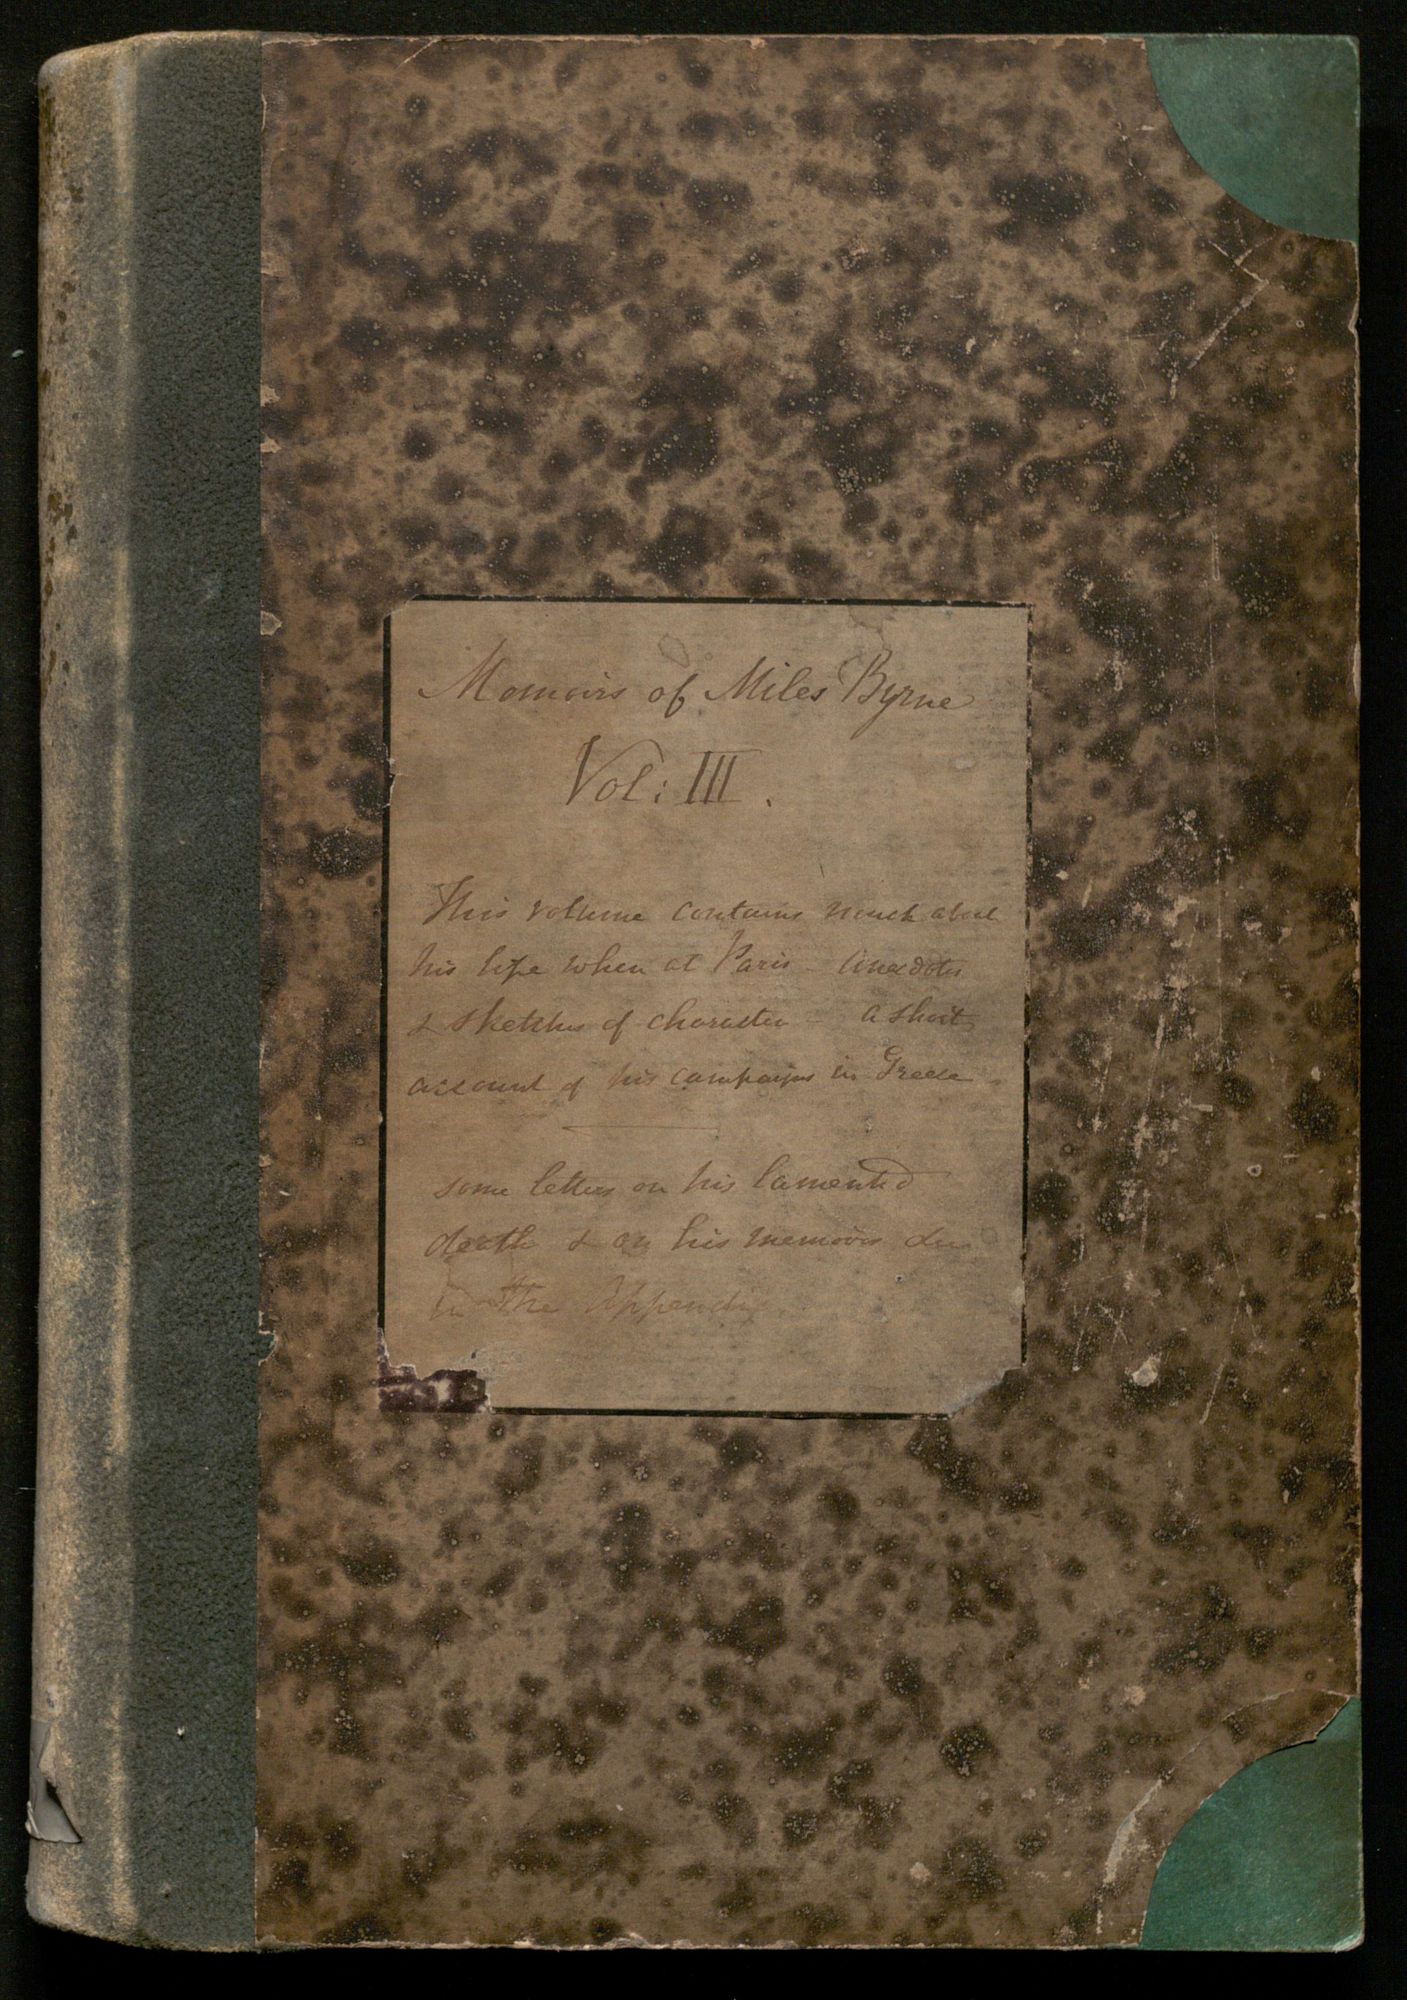 Memoirs of Miles Byrne
Vol: III.
This volume contains much about
his life when at Paris - Anecdotes
& sketches of character - a short
account of his campaigns in Greece -
some letters on his lamented
death & on his memoirs &c
in the Appendix